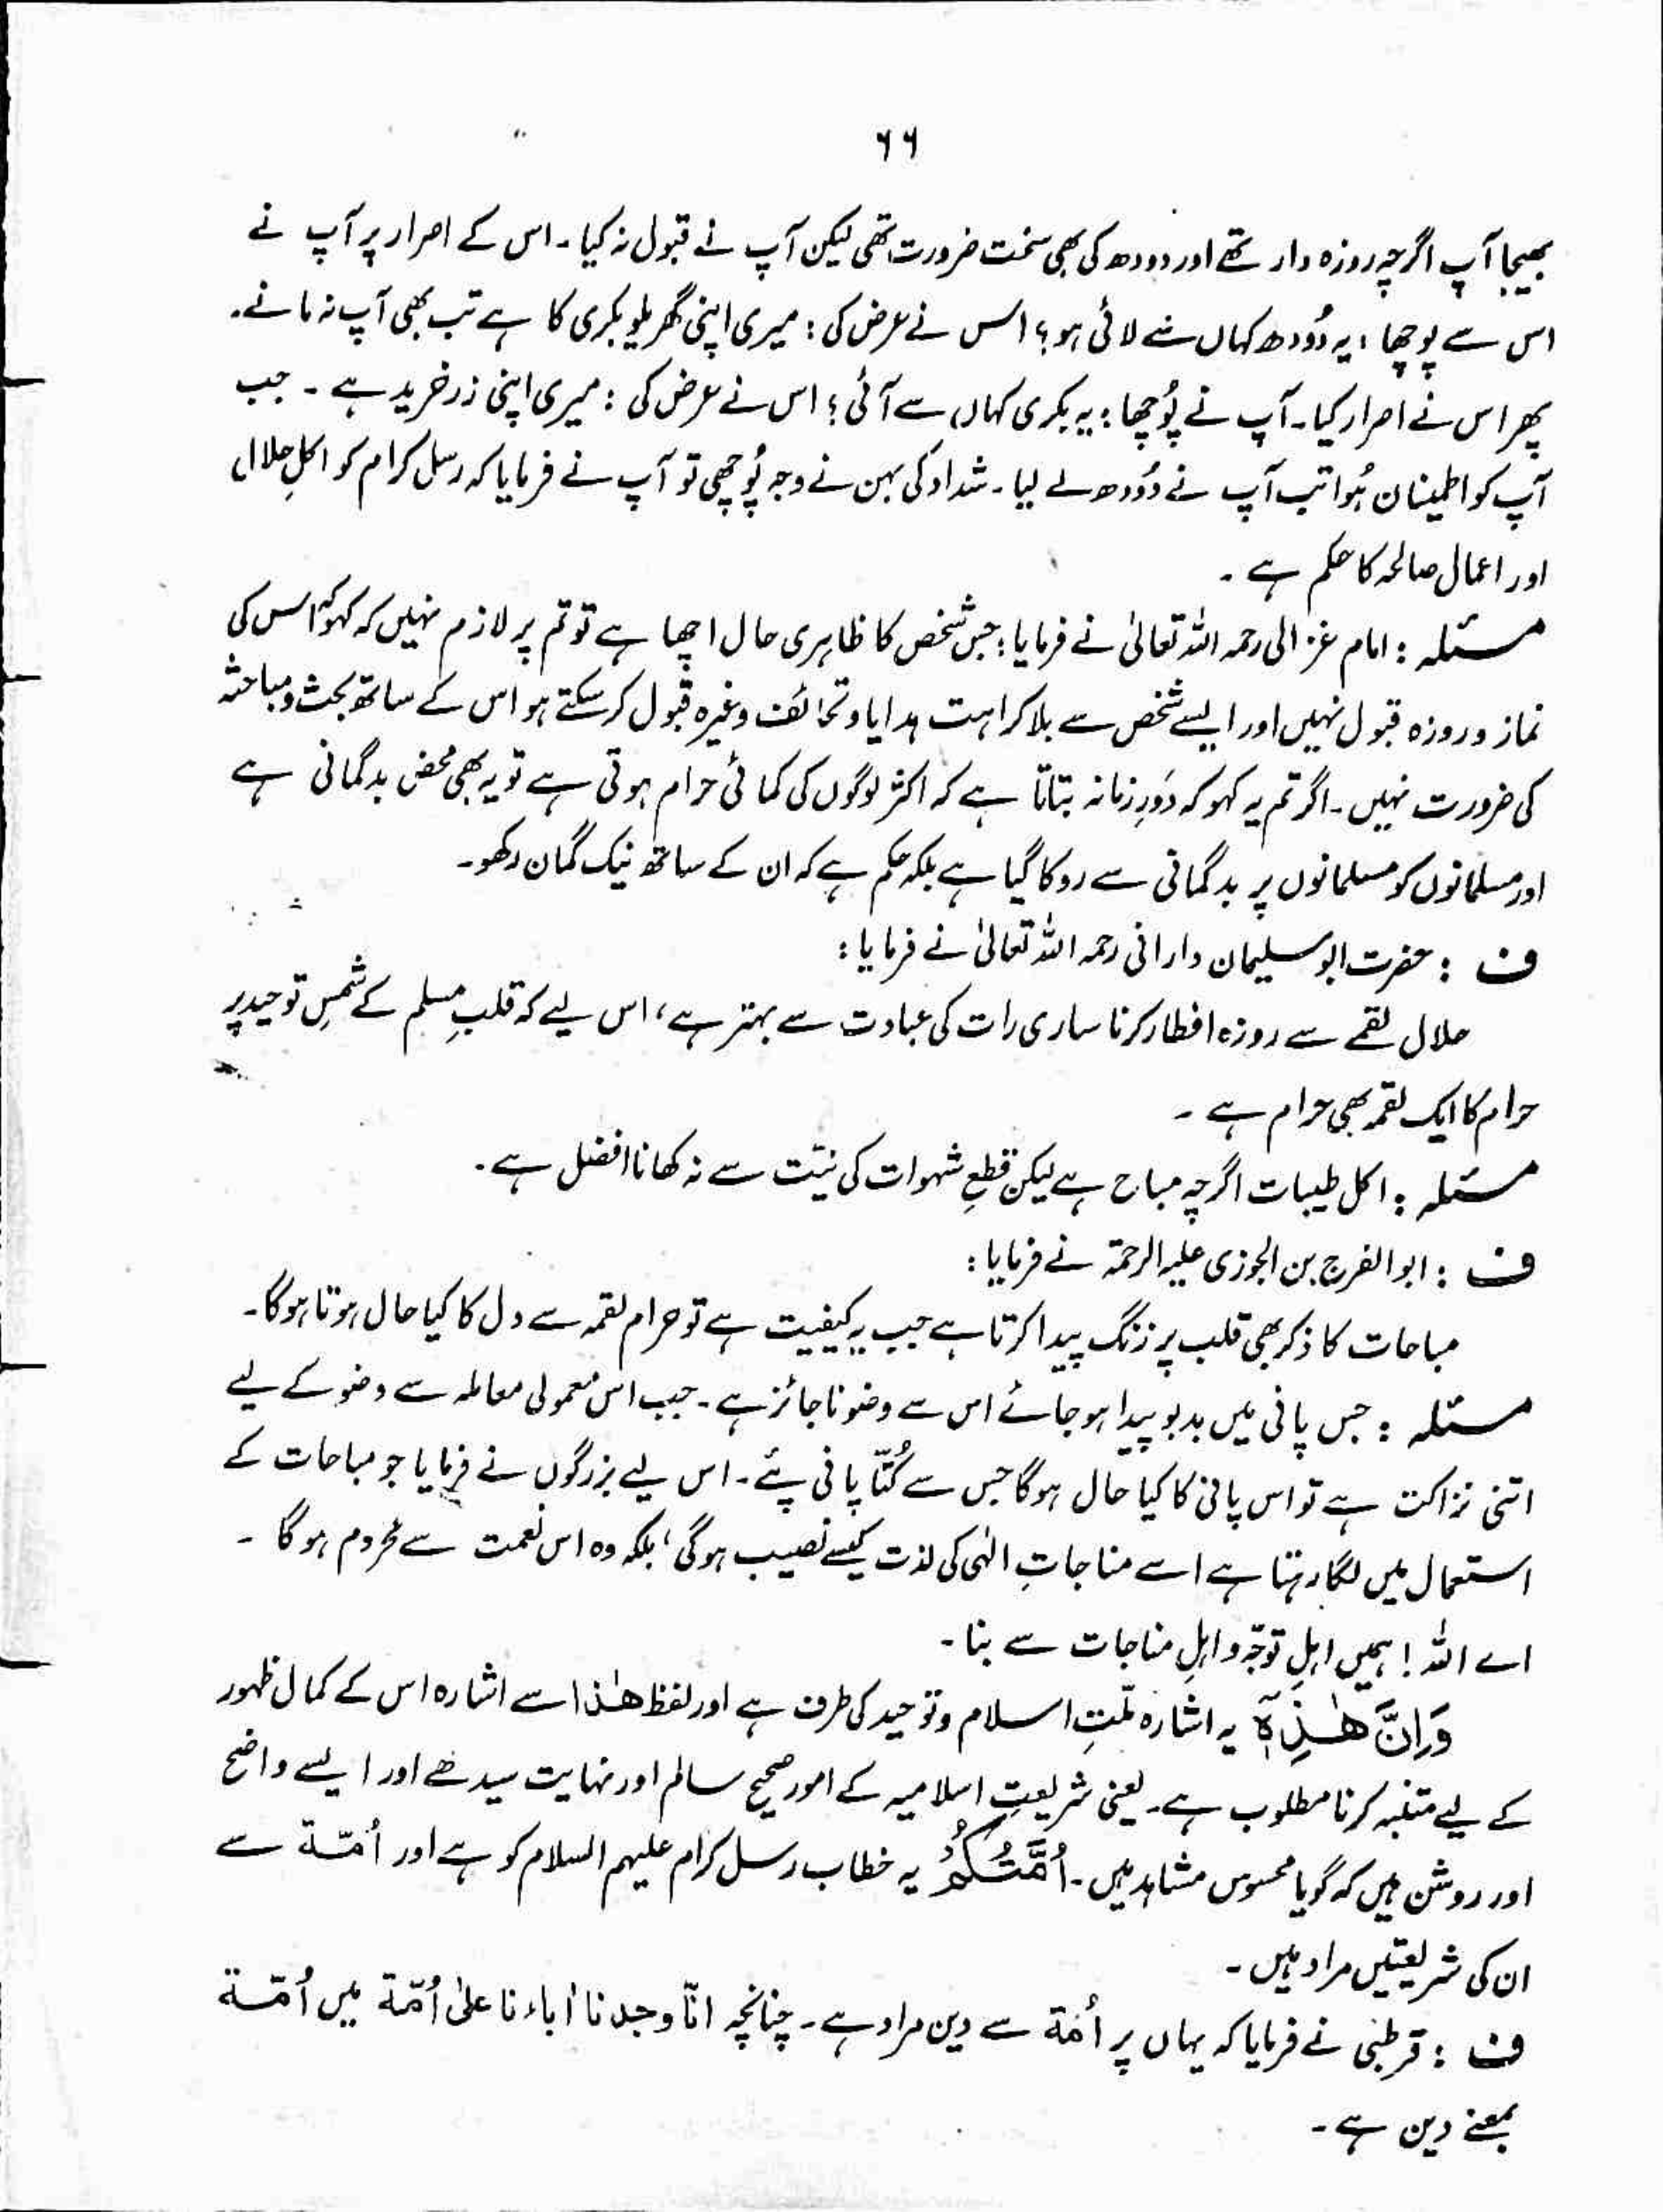 ۶۶
بھیجا آپ اگرچہ روزہ دار تھے اور دودھ کی بھی سخت ضرورت تھی لیکن آپ نے قبول نہ کیا۔ اس کے اصرار پر آپ نے
اس سے پوچھا : یہ دُودھ کہاں سے لائی ہو؟ اس نے عرض کی : میری اپنی گھریلو بکری کا ہے تب بھی آپ نہ مانے۔
پھر اس نے اصرار کیا۔ آپ نے پُوچھا : یہ بکری کہاں سے آئی؟ اس نے عرض کی : میری اپنی زرخرید ہے ۔ جب
آپ کو اطمینان ہُوا تب آپ نے دُودھ لے لیا۔ شداد کی بہن نے وجہ پُوچھی تو آپ نے فرمایا کہ رسل کرام کو اکلِ حلال
اور اعمال صالحہ کا حکم ہے ۔
مسئلہ : امام غزالی رحمہ اللہ تعالیٰ نے فرمایا : جس شخص کا ظاہری حال اچھا ہے تو تم پر لازم نہیں کہ کہو کہ اس کی
نماز و روزہ قبول نہیں اور ایسے شخص سے بلا کراہت ہدایا و تحائف وغیرہ قبول کر سکتے ہو اس کے ساتھ بحث و مباحثہ
کی ضرورت نہیں۔ اگر تم یہ کہو کہ دَورِ زمانہ بتاتا ہے کہ اکثر لوگوں کی کمائی حرام ہوتی ہے تو یہ بھی محض بدگمانی ہے
اور مسلمانوں کو مسلمانوں پر بدگمانی سے روکا گیا ہے بلکہ حکم ہے کہ ان کے ساتھ نیک گمان رکھو۔
ف : حضرت ابو سلیمان دارانی رحمہ اللہ تعالیٰ نے فرمایا :
حلال لقمے سے روزہ افطار کرنا ساری رات کی عبادت سے بہتر ہے، اس لیے کہ قلبِ مسلم کے شمسِ توحید پر
حرام کا ایک لقمہ بھی حرام ہے ۔
مسئلہ : اکل طیبات اگرچہ مباح ہے لیکن قطعِ شہوات کی نیّت سے نہ کھانا افضل ہے۔
ف : ابوالفرج بن الجوزی علیہ الرحمۃ نے فرمایا :
مباحات کا ذکر بھی قلب پر زنگ پیدا کرتا ہے جب یہ کیفیت ہے تو حرام لقمہ سے دل کا کیا حال ہوتا ہوگا۔
مسئلہ : جس پانی میں بدبو پیدا ہو جائے اس سے وضو ناجائز ہے۔ جب اس معمولی معاملہ سے وضو کے لیے
اتنی نزاکت ہے تو اس پانی کا کیا حال ہوگا جس سے کُتّا پانی پئے۔ اس لیے بزرگوں نے فرمایا جو مباحات کے
استعمال میں لگا رہتا ہے اسے مناجاتِ الٰہی کی لذت کیسے نصیب ہوگی، بلکہ وہ اس نعمت سے محروم ہوگا ۔
اے اللہ ! ہمیں اہلِ توجّہ و اہلِ مناجات سے بنا۔
وَاِنَّ هٰذِهٖٓ یہ اشارہ ملّتِ اسلام و توحید کی طرف ہے اور لفظ هٰذا سے اشارہ اس کے کمال ظہور
کے لیے متنبہ کرنا مطلوب ہے۔ یعنی شریعتِ اسلامیہ کے امور صحیح سالم اور نہایت سیدھے اور ایسے واضح
اور روشن ہیں کہ گویا محسوس مشاہد ہیں۔ اُمَّتُکُمْ یہ خطاب رسل کرام علیہم السلام کو ہے اور اُمّة سے
ان کی شریعتیں مراد ہیں۔
ف : قرطبی نے فرمایا کہ یہاں پر اُمّة سے دین مراد ہے۔ چنانچہ انّا وجدنا اٰباءنا علیٰ اُمّة میں اُمّة
بمعنے دین ہے۔